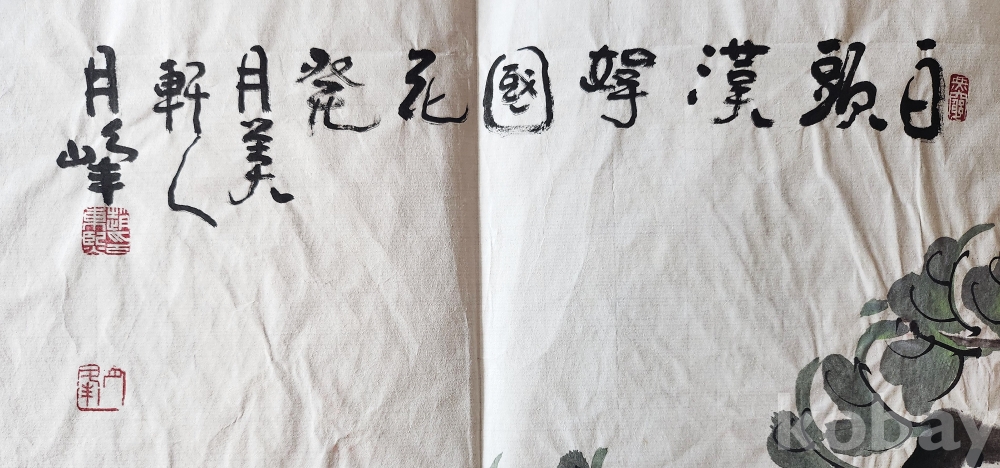 白頭漢拏國花發
月美
軒人
月峰
kobay